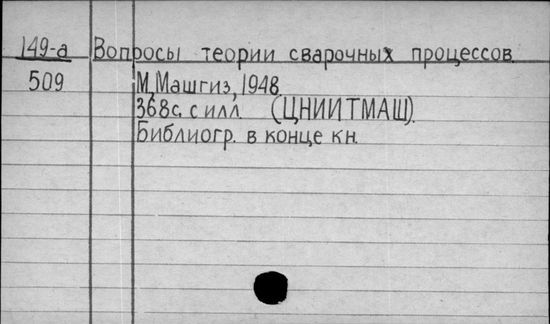 149-а Вопросы теории сварочных процессов
509 М, Машгиз, 1948.
368с. с илл. (ЦНИИТМАШ).
Библиогр. в конце кн.